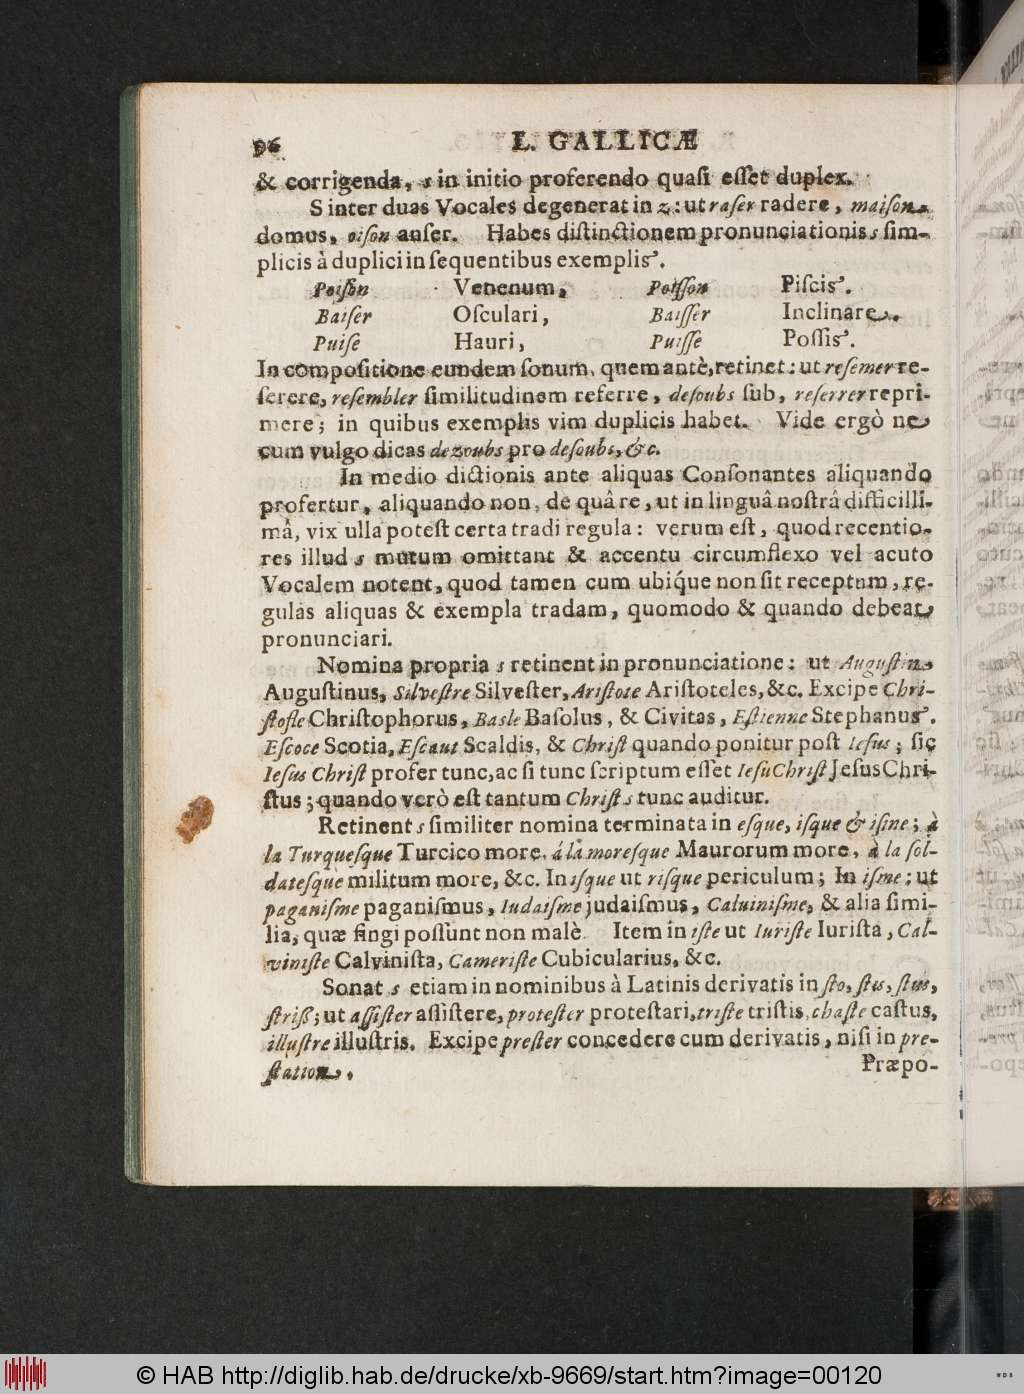 96 L. GALLICÆ
& corrigenda, s in initio proferendo quaſi eſſet duplex.
S inter duas Vocales degenerat in z: ut raſer radere, maiſon
domus, oiſon anſer. Habes diſtinctionem pronunciationis s ſim-
plicis à duplici in ſequentibus exemplis.
Poiſon Venenum, Poiſſon Piſcis.
Baiſer Oſculari, Baiſſer Inclinare.
Puiſe Hauri, Puiſſe Poſſis.
In compoſitione eundem ſonum, quem antè, retinet: ut reſemer re-
ſerere, reſembler ſimilitudinem referre, deſoubs ſub, reſerrer repri-
mere; in quibus exemplis vim duplicis habet. Vide ergò ne
cum vulgo dicas dezoubs pro deſoubs, &c.
In medio dictionis ante aliquas Conſonantes aliquando
profertur, aliquando non, de quâ re, ut in linguâ noſtrâ difficilli-
mâ, vix ulla poteſt certa tradi regula: verum eſt, quod recentio-
res illud s mutum omittant & accentu circumflexo vel acuto
Vocalem notent, quod tamen cum ubiq́ue non ſit receptum, re-
gulas aliquas & exempla tradam, quomodo & quando debeat
pronunciari.
Nomina propria s retinent in pronunciatione: ut Auguſtin
Auguſtinus, Silveſtre Silveſter, Ariſtote Ariſtoteles, &c. Excipe Chri-
ſtofle Chriſtophorus, Basle Baſolus, & Civitas, Eſtienne Stephanus.
Eſcoce Scotia, Eſcaut Scaldis, & Chriſt quando ponitur poſt Ieſus; ſic
Ieſus Chriſt profer tunc, ac ſi tunc ſcriptum eſſet Ieſu Chriſt Jeſus Chri-
ſtus; quando verò eſt tantum Chriſt s tunc auditur.
Retinent s ſimiliter nomina terminata in eſque, iſque & iſme; à
la Turqueſque Turcico more, á la moreſque Maurorum more, à la ſol-
dateſque militum more, &c. In iſque ut riſque periculum; In iſme; ut
paganiſme paganiſmus, Iudaiſme judaiſmus, Caluiniſme, & alia ſimi-
lia, quæ fingi poſſunt non malè. Item in iſte ut Iuriſte Iuriſta, Cal-
viniſte Calviniſta, Cameriſte Cubicularius, &c.
Sonat s etiam in nominibus à Latinis derivatis in ſto, ſtis, ſtus,
ſtris; ut aſſiſter aſſiſtere, proteſter proteſtari, triſte triſtis, chaſte caſtus,
illuſtre illuſtris. Excipe preſter concedere cum derivatis, niſi in pre-
ſtation.
Præpo-
© HAB http://diglib.hab.de/drucke/xb-9669/start.htm?image=00120